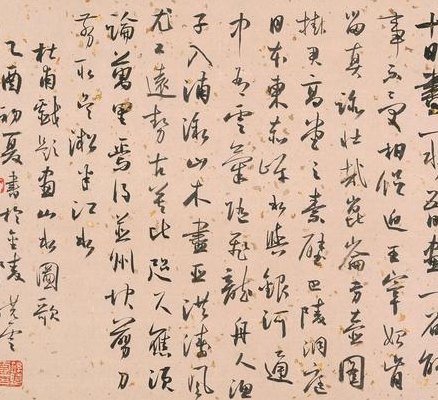 十日畫一水五日畫一石能
事不受相促迫王宰始肯
留真跡壯哉崑崙方壺圖
掛君高堂之素壁巴陵洞庭
日本東赤岸水與銀河通
中有雲氣隨飛龍舟人漁
子入浦漵山木盡亞洪濤風
尤工遠勢古莫比咫尺應須
論萬里焉得並州快剪刀
剪取吳淞半江水
杜甫戲題畫山水圖歌
乙酉初夏書於金陵